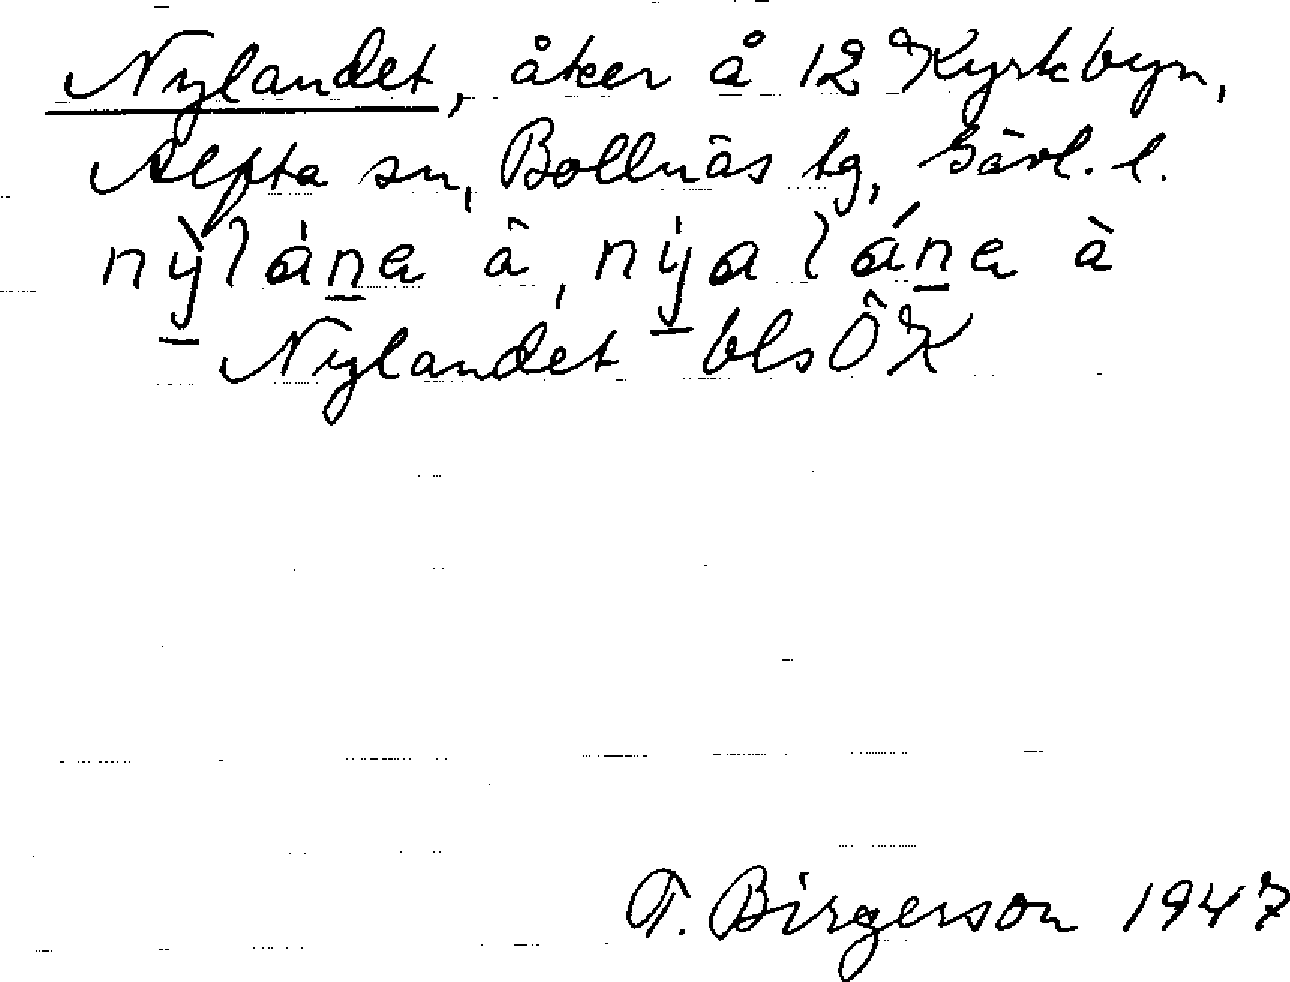 Nylandet, åker å 12 Kyrkbyn,
Alfta sn, Bollnäs tg, Gävl. l.
nỳlána â, nýa lána à
Nylandet bls ÖK
T. Birgerson 1947